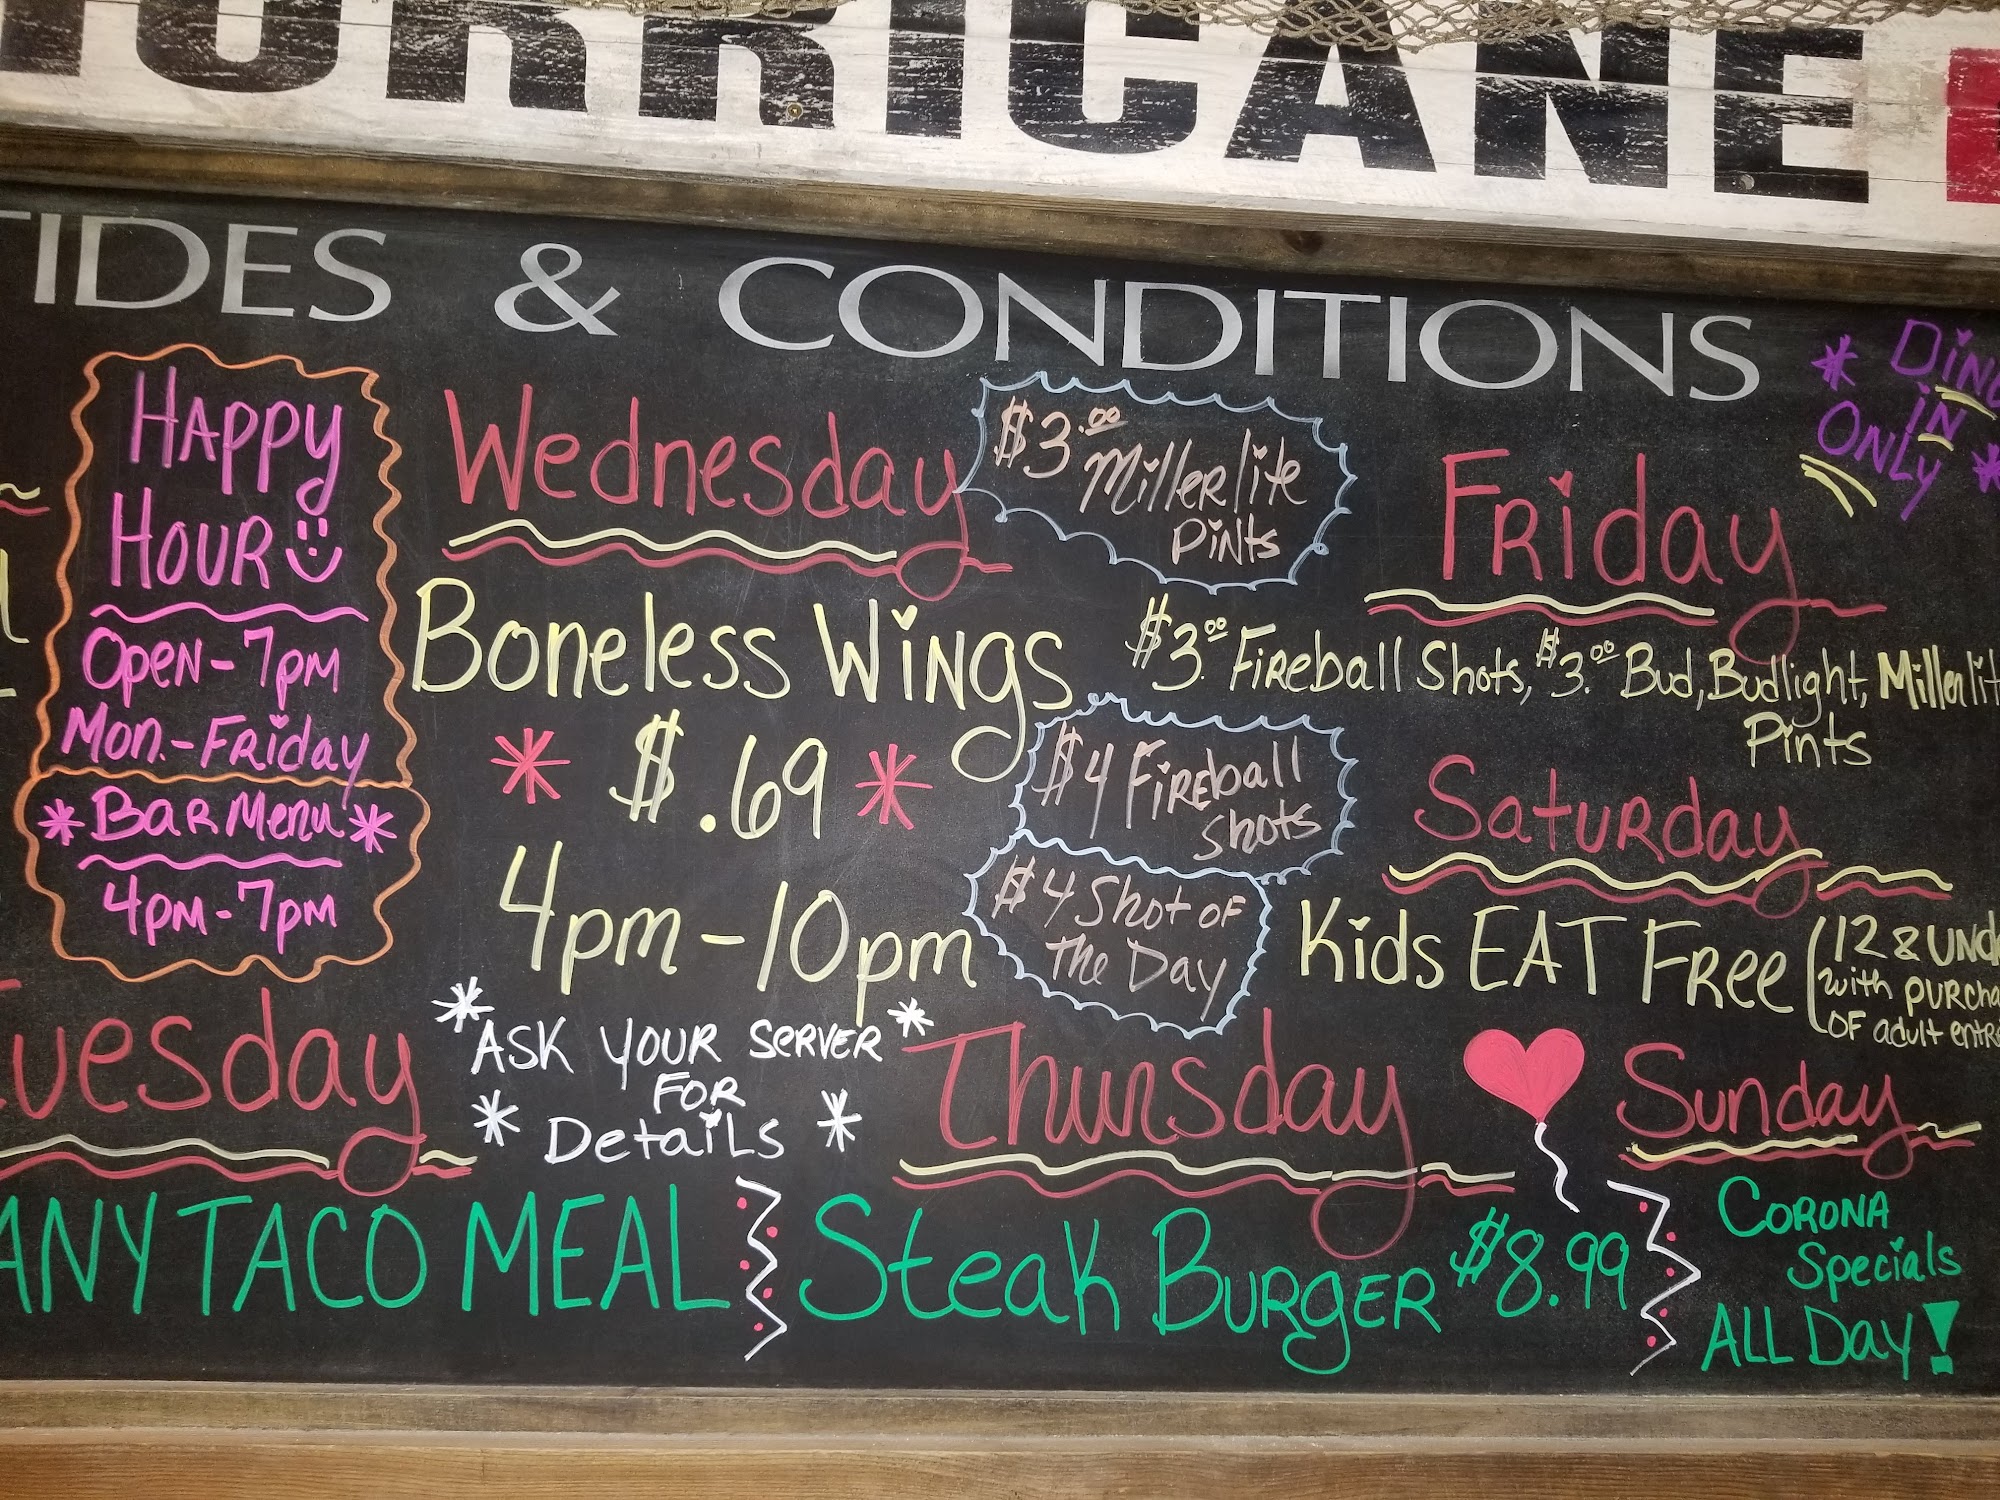 HURRICANE
TIDES & CONDITIONS
* DINE
IN
ONLY *
HAPPY
HOUR
OPEN - 7PM
MON. - FRIDAY
* BAR MENU *
4PM - 7PM
Wednesday
Boneless Wings
* $.69 *
4pm - 10pm
* ASK YOUR SERVER *
FOR
* Details *
$3.00
Miller lite
Pints
$4 Fireball
Shots
$4 Shot of
the Day
Friday
$3.00 Fireball Shots, $3.00 Bud, Budlight, Miller lit
Pints
Saturday
Kids EAT Free (12 & Unde
with purcha
of adult entre
Tuesday
ANY TACO MEAL
Thursday
Steak Burger $8.99
Sunday
CORONA
Specials
ALL Day!